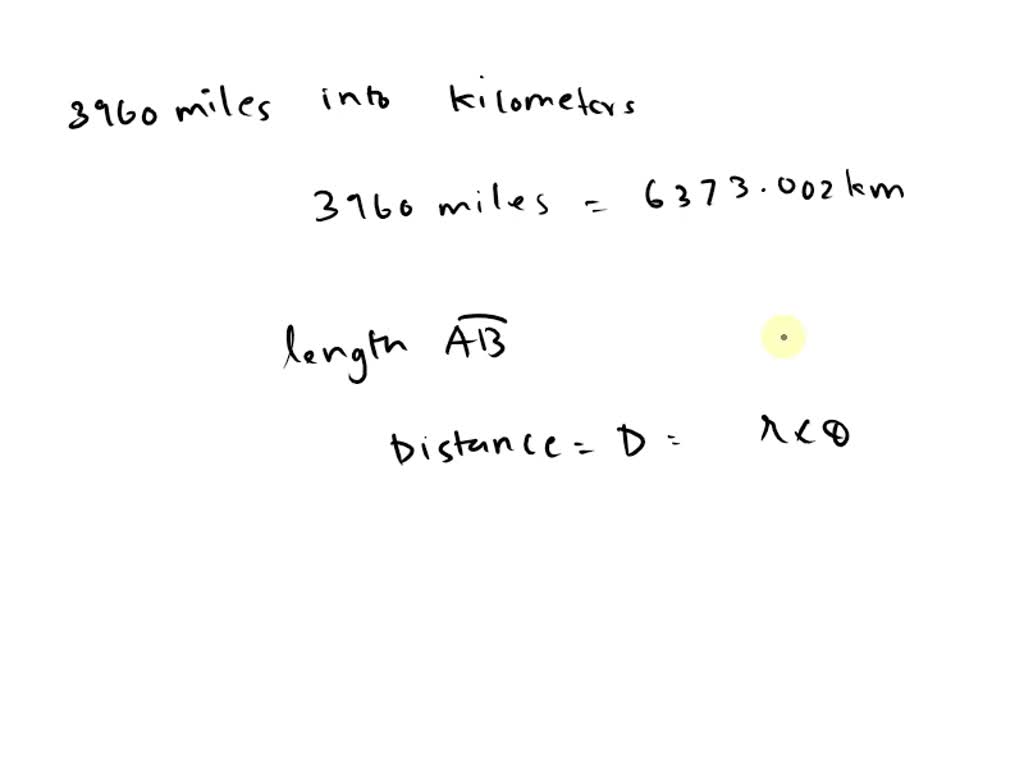 3960 miles into kilometers
3960 miles = 6373.002 km
length AB
Distance = D = r × θ